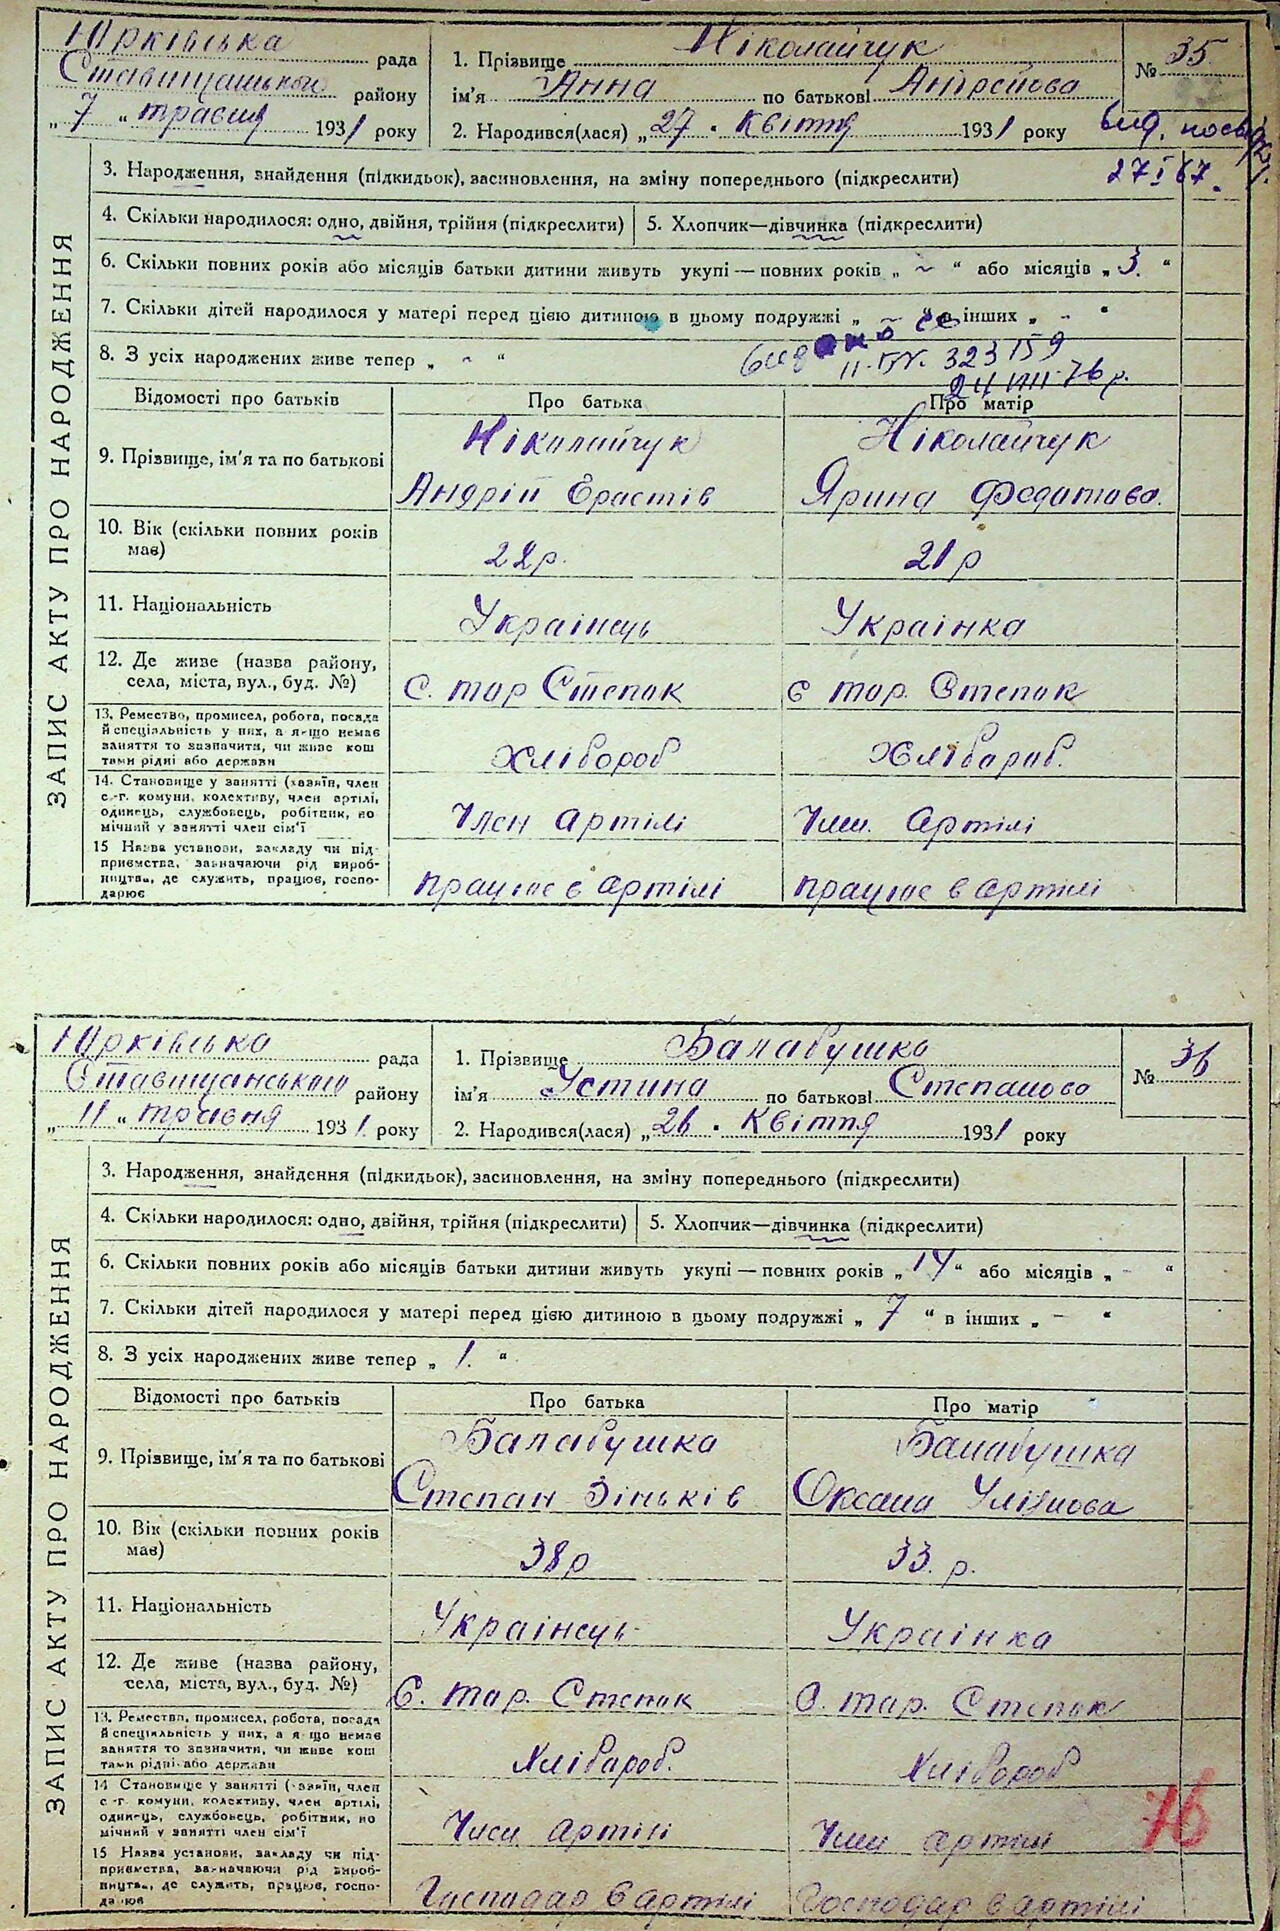 Юрківська рада
Ставищанського району
„ 7 “ травня 1931 року
1. Прізвище Ніколайчук
ім'я Анна по батькові Андреїова
2. Народився(лася) „ 27 . квіття 1931 року
№ 35
вид. посвід.
27 I 67.
ЗАПИС АКТУ ПРО НАРОДЖЕННЯ
3. Народження, знайдення (підкидьок), засиновлення, на зміну попереднього (підкреслити)
4. Скільки народилося: одно, двійня, трійня (підкреслити) 5. Хлопчик—дівчинка (підкреслити)
6. Скільки повних років або місяців батьки дитини живуть укупі — повних років „ ~ “ або місяців „ 3. “
7. Скільки дітей народилося у матері перед цією дитиною в цьому подружжі „ – “ в інших „ - “
8. З усіх народжених живе тепер „ - “
323159
24 VIII 76 р.
Відомості про батьків Про батька Про матір
9. Прізвище, ім'я та по батькові
Ніколайчук Ніколайчук
Андрій Ерастів Ярина Федотова.
10. Вік (скільки повних років має) 22р. 21р
11. Національність Українець Украінка
12. Де живе (назва району, села, міста, вул., буд. №) С. тар Степок с тар. Степок
13. Ремество, промисел, робота, посада
й спеціальність у них, а якщо немає
заняття то зазначити, чи живе кош
тами рідні або держави
Хлібороб Хлібароб.
14. Становище у занятті (хазяїн, член
с.-г. комуни, колективу, член артілі,
одинець, службовець, робітник, по
мічний у занятті член сім'ї
Член артілі Член. Артілі
15 Назва установи, закладу чи під-
приємства, зазначаючи рід вироб-
ництва, де служить, працює, госпо-
дарює
працює в артілі працює в артілі
Юрківська рада
Ставищанського району
„ 11 “ травня 1931. року
1. Прізвище Балабушка
ім'я Устина по батькові Степанова
2. Народився(лася) „ 26 . Квіття 1931 року
№ 36
ЗАПИС АКТУ ПРО НАРОДЖЕННЯ
3. Народження, знайдення (підкидьок), засиновлення, на зміну попереднього (підкреслити)
4. Скільки народилося: одно, двійня, трійня (підкреслити) 5. Хлопчик—дівчинка (підкреслити)
6. Скільки повних років або місяців батьки дитини живуть укупі — повних років „ 14 “ або місяців „ - “
7. Скільки дітей народилося у матері перед цією дитиною в цьому подружжі „ 7 “ в інших „ – “
8. З усіх народжених живе тепер „ 1. “
Відомості про батьків Про батька Про матір
9. Прізвище, ім'я та по батькові
Балабушка Балабушка
Степан Зіньків Оксана Улянова
10. Вік (скільки повних років має) 38р 33. р.
11. Національність Українець Украінка
12. Де живе (назва району, села, міста, вул., буд. №) С. тар. Степок С. тар. Степок
13. Ремества, промисел, робота, посада
й спеціяльність у них, а якщо немає
заняття то зазначити, чи живе кош
тами рідні або держави
Хлібароб. Хлібороб
14 Становище у занятті (хазяїн, член
с.-г. комуни, колективу, член артілі,
одинець, службовець, робітник, по
мічний у занятті член сім'ї
Член артілі Член артілі
76
15 Назва установи, закладу чи під-
приємства, зазначаючи рід вироб-
ництва, де служить, працює, госпо-
дарює
Господар в артілі Господар в артілі